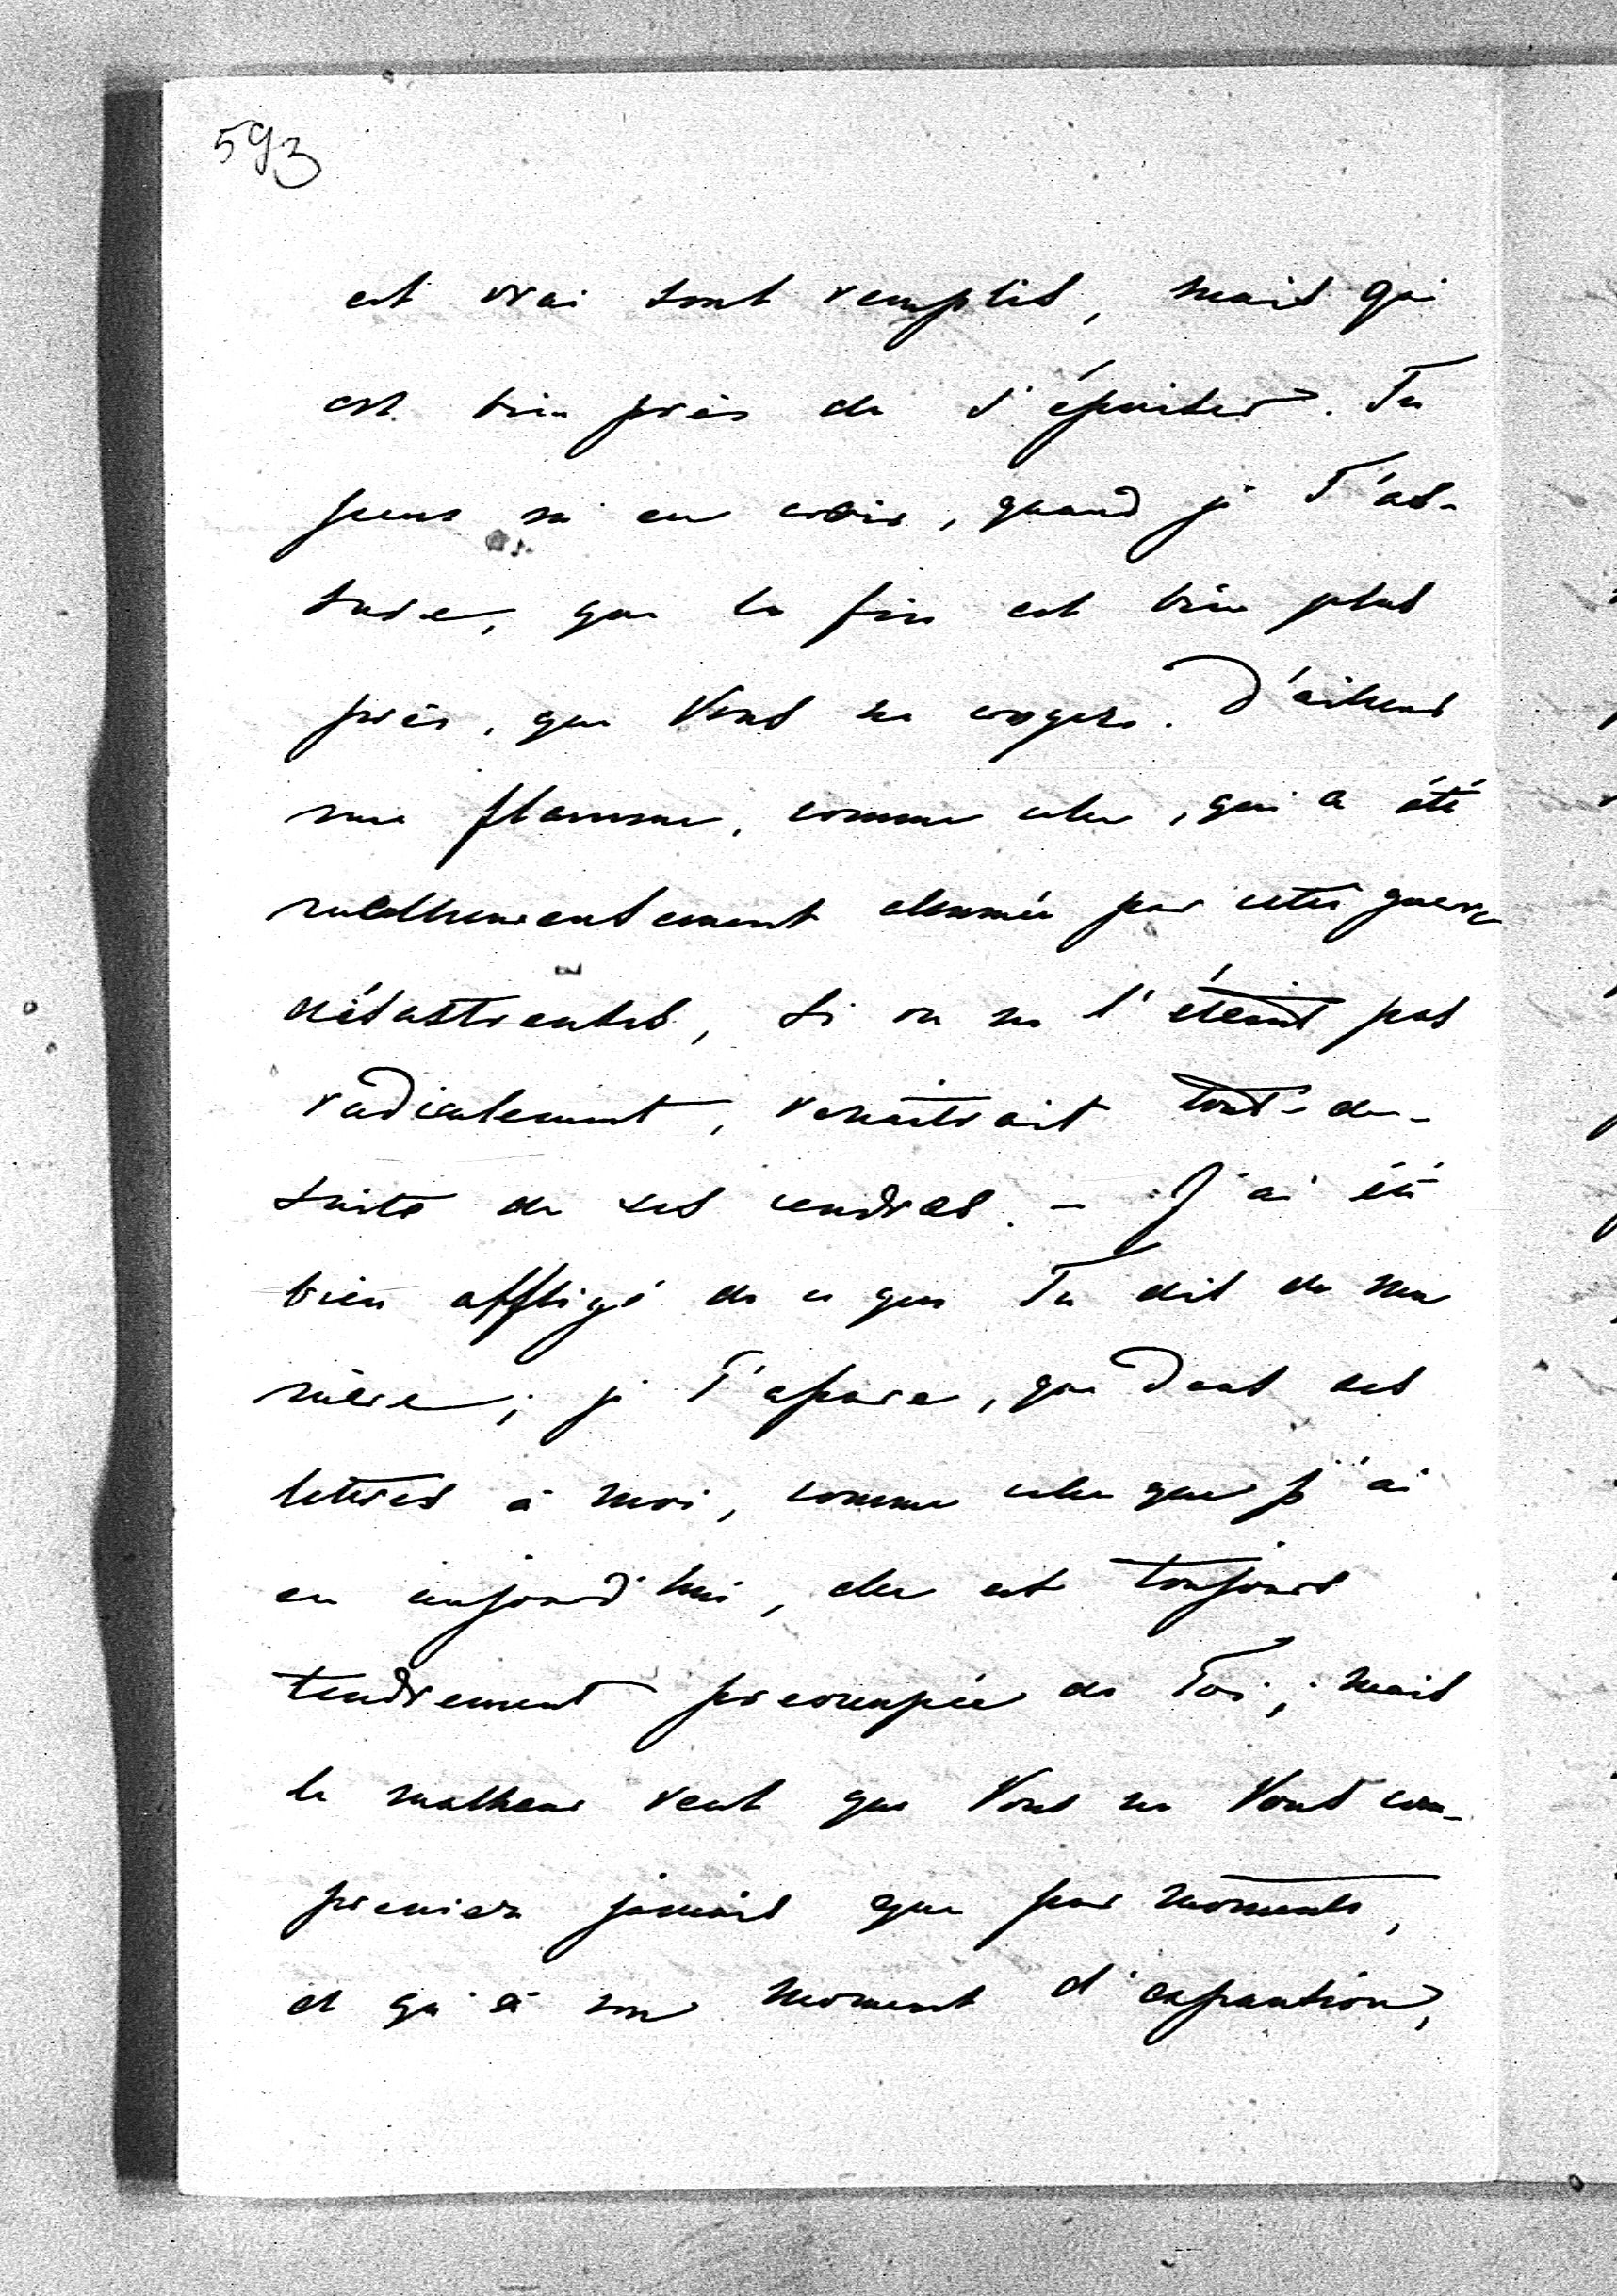 593
est vrai sont remplis, mais qui
est bien près de s'épuiser. Tu
peux m'en croir, quand je T'as-
sure, que la fin est bien plus
près, que Vous ne croyez. D'ailleurs
une flamme, comme celle, qui a été
malheureusement alumée par cette guerre
désastreuses, si on ne l'éteint pas
radicalement, renaitrait tout-de-
suite de ses cendres. – J'ai été
bien affligé de ce que Tu dis de ma
mère; je T'assure, que dans ses
lettres à moi, comme celle que j'ai
eu aujourd'hui, elle est toujours
tendrement preoccupée de Toi; mais
le malheur veut que Vous ne Vous com-
preniez jamais que par moments,
et qu'à un moment d'expantion,